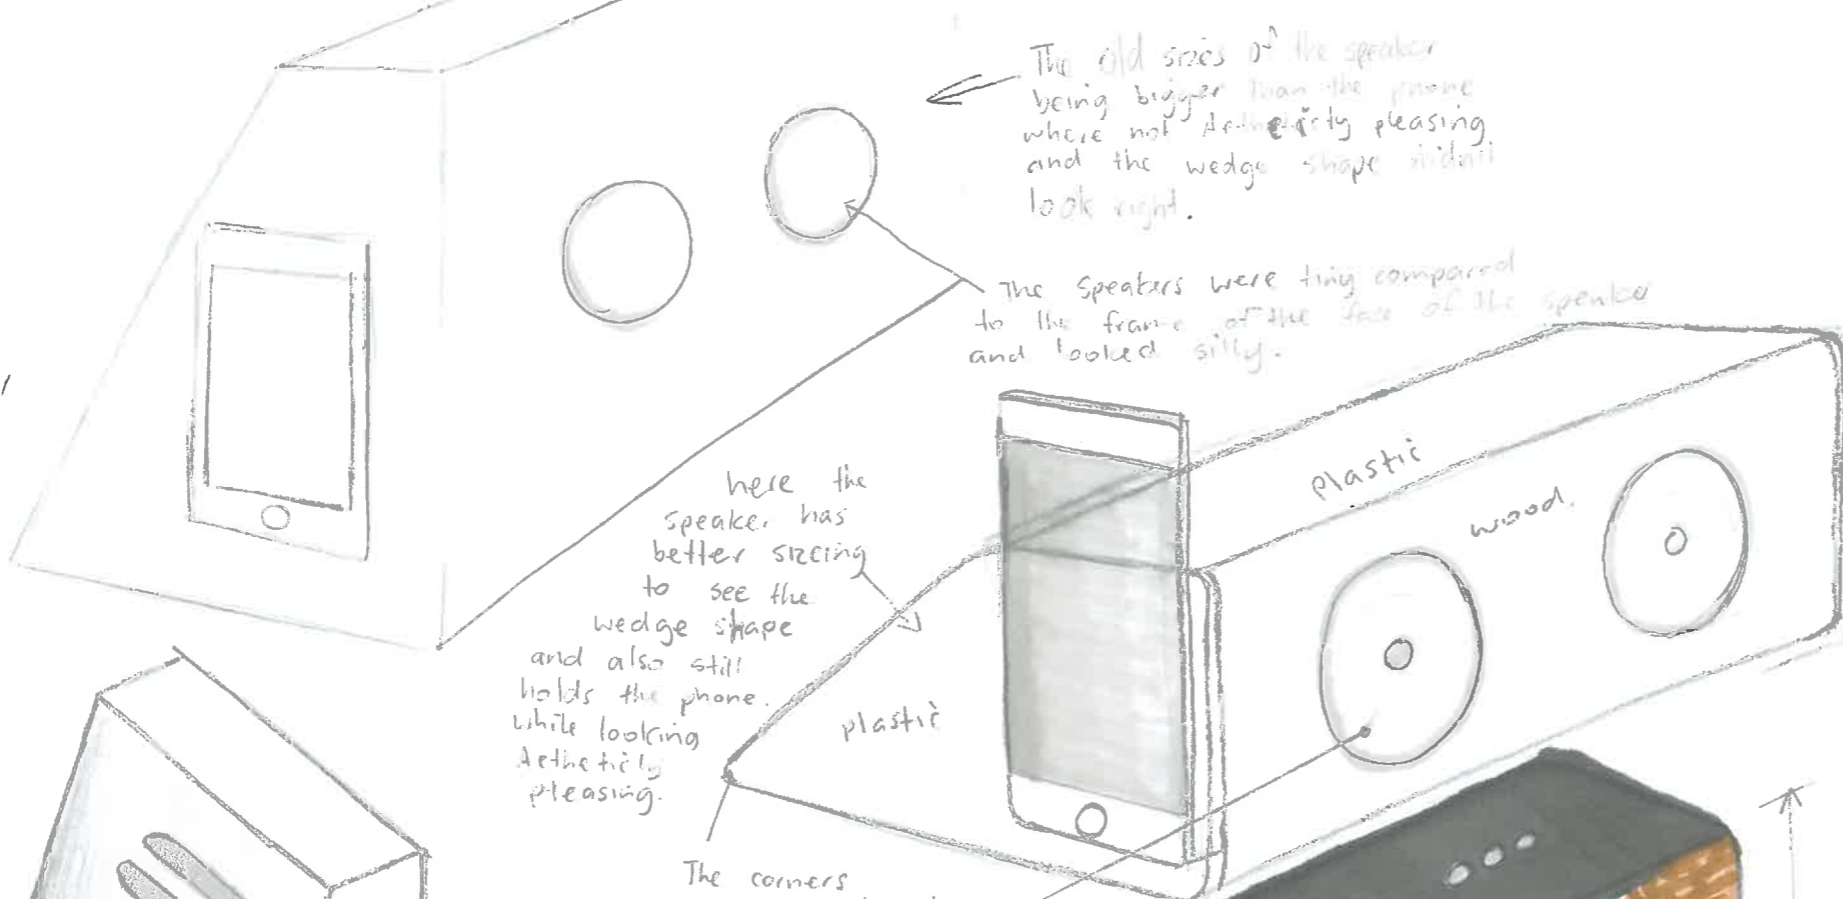 The old sizes of the speaker
being bigger than the phone
where not Aetheticly pleasing
and the wedge shape didnt
look right.
The speakers were tiny compared
to the frame of the face of the speaker
and looked silly.
here the
speaker has
better sizeing
to see the
wedge shape
and also still
holds the phone.
while looking
Aetheticly
pleasing.
plastic
wood.
plastic
The corners